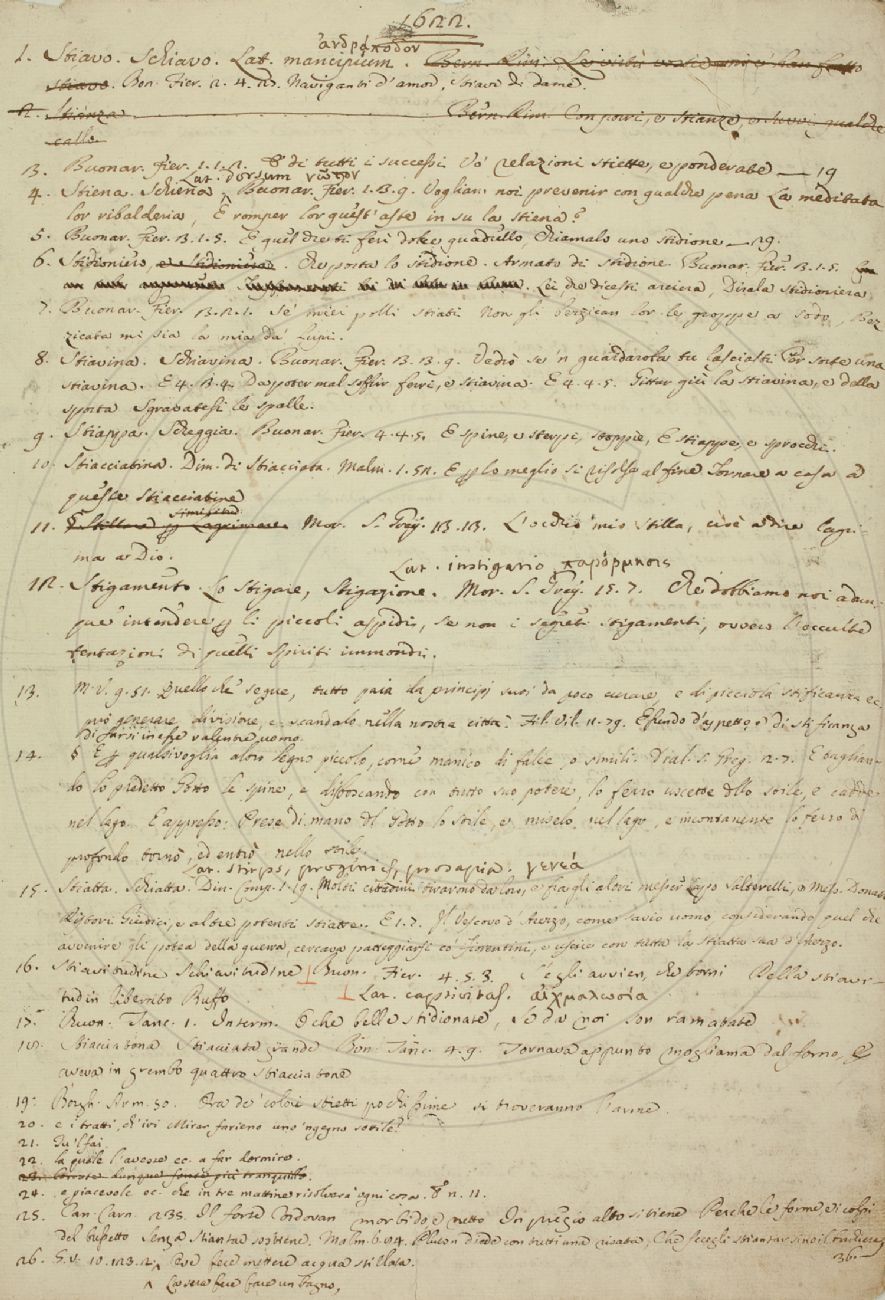 1622.
ἀνδράποδον
1. Stiavo. Schiavo. Lat. mancipium. Bern. Rim.
stiavo. Bon. Fier. 2. 4. 25. Naviganti d'amor, stiavi di dame.
2. Stianza Bern. Rim. Con porri, e stianze, e qualche
callo
3. Buonar. Fier. 1. 1. 2. E di tutti i successi Vo' relazioni stiette, e ponderate — 19
Lat. dorsum νῶτον
4. Stiena. Schiena, Buonar. Fier. 1. 3. 9. Vogliam noi prevenir con qualche pena La meditata
lor ribalderia, E romper lor quest'aste in su la stiena?
5. Buonar. Fier. 3. 1. 5. E quel che ti feri dolce quadrello, Chiamalo uno stidione — 29.
6. Stidioniero, e Stidioniera. Che porta lo stidione. Armato di stidione. Buonar. Fier. 3. 1. 5.
Lei, che dicesti arciera, Dirala stidioniera
7. Buonar. Fier. 3. 2. 1. Se' miei polli stiati Non gli bezzican lor le groppe a sodo, Bez-
zicata mi sia la mia da' Lupi.
8. Stiavina. Schiavina. Buonar. Fier. 3. 3. 9. Vedrò se 'n guardaroba tu lasciasti Per sorte una
stiavina. E 4. 3. 4. Da poter mal soffrir ferri, e stiavina. E 4. 4. 5. Gittar giù la stiavina, e della
sporta Sgravatesi le spalle.
9. Stiappa. Scheggia. Buonar. Fier. 4. 4. 5. E spine, e sterpi, stoppie, E stiappe, e sprocchi.
10. Stiacciatina. Dim. di Stiacciata. Malm. 1. 52. E per lo meglio si risolse al fine Tornare a casa a
queste stiacciatine
Similitud.
11. § Stillare per Lagrimare. Mor. S. Greg. 13. 13. L'occhio mio stilla, cioè a dire lagri-
ma a Dio.
Lat. instigatio παρόρμησις
12. Stigamento. Lo stigare, Stigazione. Mor. S. Greg. 15. 7. Che dobbiamo noi adun-
que intendere per li piccoli aspidi, se non i segreti stigamenti, ovvero l'occulte
tentazioni di quelli spiriti immondi.
13. M. V. 9. 51. Quello che segue, tutto paia da principj suoi da poco curare, e di piccola stificanza ec.
può generare divisione, e scandalo nella nostra città. Fil. Vil. 11. 79. Essendo d'aspetto, e di stificanza
di farsi in esse valente uomo.
14. § E per qualsivoglia altro legno piccolo, come manico di falce, o simili. Dial. S. Greg. 2. 7. E taglian-
do lo predetto Gotto le spine, e disboscando con tutto suo potere, lo ferro uscette dello stile, e cadde
nel lago. E appresso: Prese di mano del Gotto lo stile, e miselo nel lago, e incontanente lo ferro di
profondo tornò, ed entrò nello stile.
Lat. stirps, progenies, prosapia. γενεά
15. Stiatta. Schiatta. Din. Comp. 1. 19. Molti cittadini tirarono da loro, e fra gli altri messer Lapo Salterelli, e Mess. Donato
Ristori Giudici, e altre potenti stiatte. E 1. 7. Il Vescovo d'Arezzo, come savio uomo considerando quel che
avvenire gli potea della guerra, cercava patteggiarsi co' Fiorentini, e uscire con tutta la stiatta sua d'Arezzo.
16. Stiavitudine Schiavitudine Buon. Fier. 4. 5. 3. S'egli avvien, che torni Dalla stiavi-
tudin liberato Ruffo Lat. captivitas. αἰχμαλωσία
17. Buon. Tanc. 1. Interm. O che belle stidionate, Se da noi son ramatate
18. Stiacciatona Stiacciata grande Bon. Tanc. 4. 9. Tornava appunto mogliama dal forno, E
aveva in grembo quattro stiacciatone
19. Borgh. Arm. 50. Tra de' colori stietti pochissime si troveranno l'arme.
20. e i tratti, ch'ivi Mirar farieno uno 'ngegno sottile?
21. Tu 'l fai.
22. la quale l'avesse ec. a far dormire.
23. più tranquillo.
24. e piacevole ec. che in tre mattine risolverà ogni cosa. § n. 11.
25. Can. Carn. 235. Il forte Cordovan morbido, e netto In pregio alto si tiene Perchè le forme, e i colpi
del bussetto Senza stiantar sostiene. Malm. 6. 94. Pluton diede con tutti una risata, Che fecegli stiantar sino il brachiere
36.
26. G. V. 10. 123. 2. Ove fece mettere acqua stillata.
^ La sera fece fare un bagno,